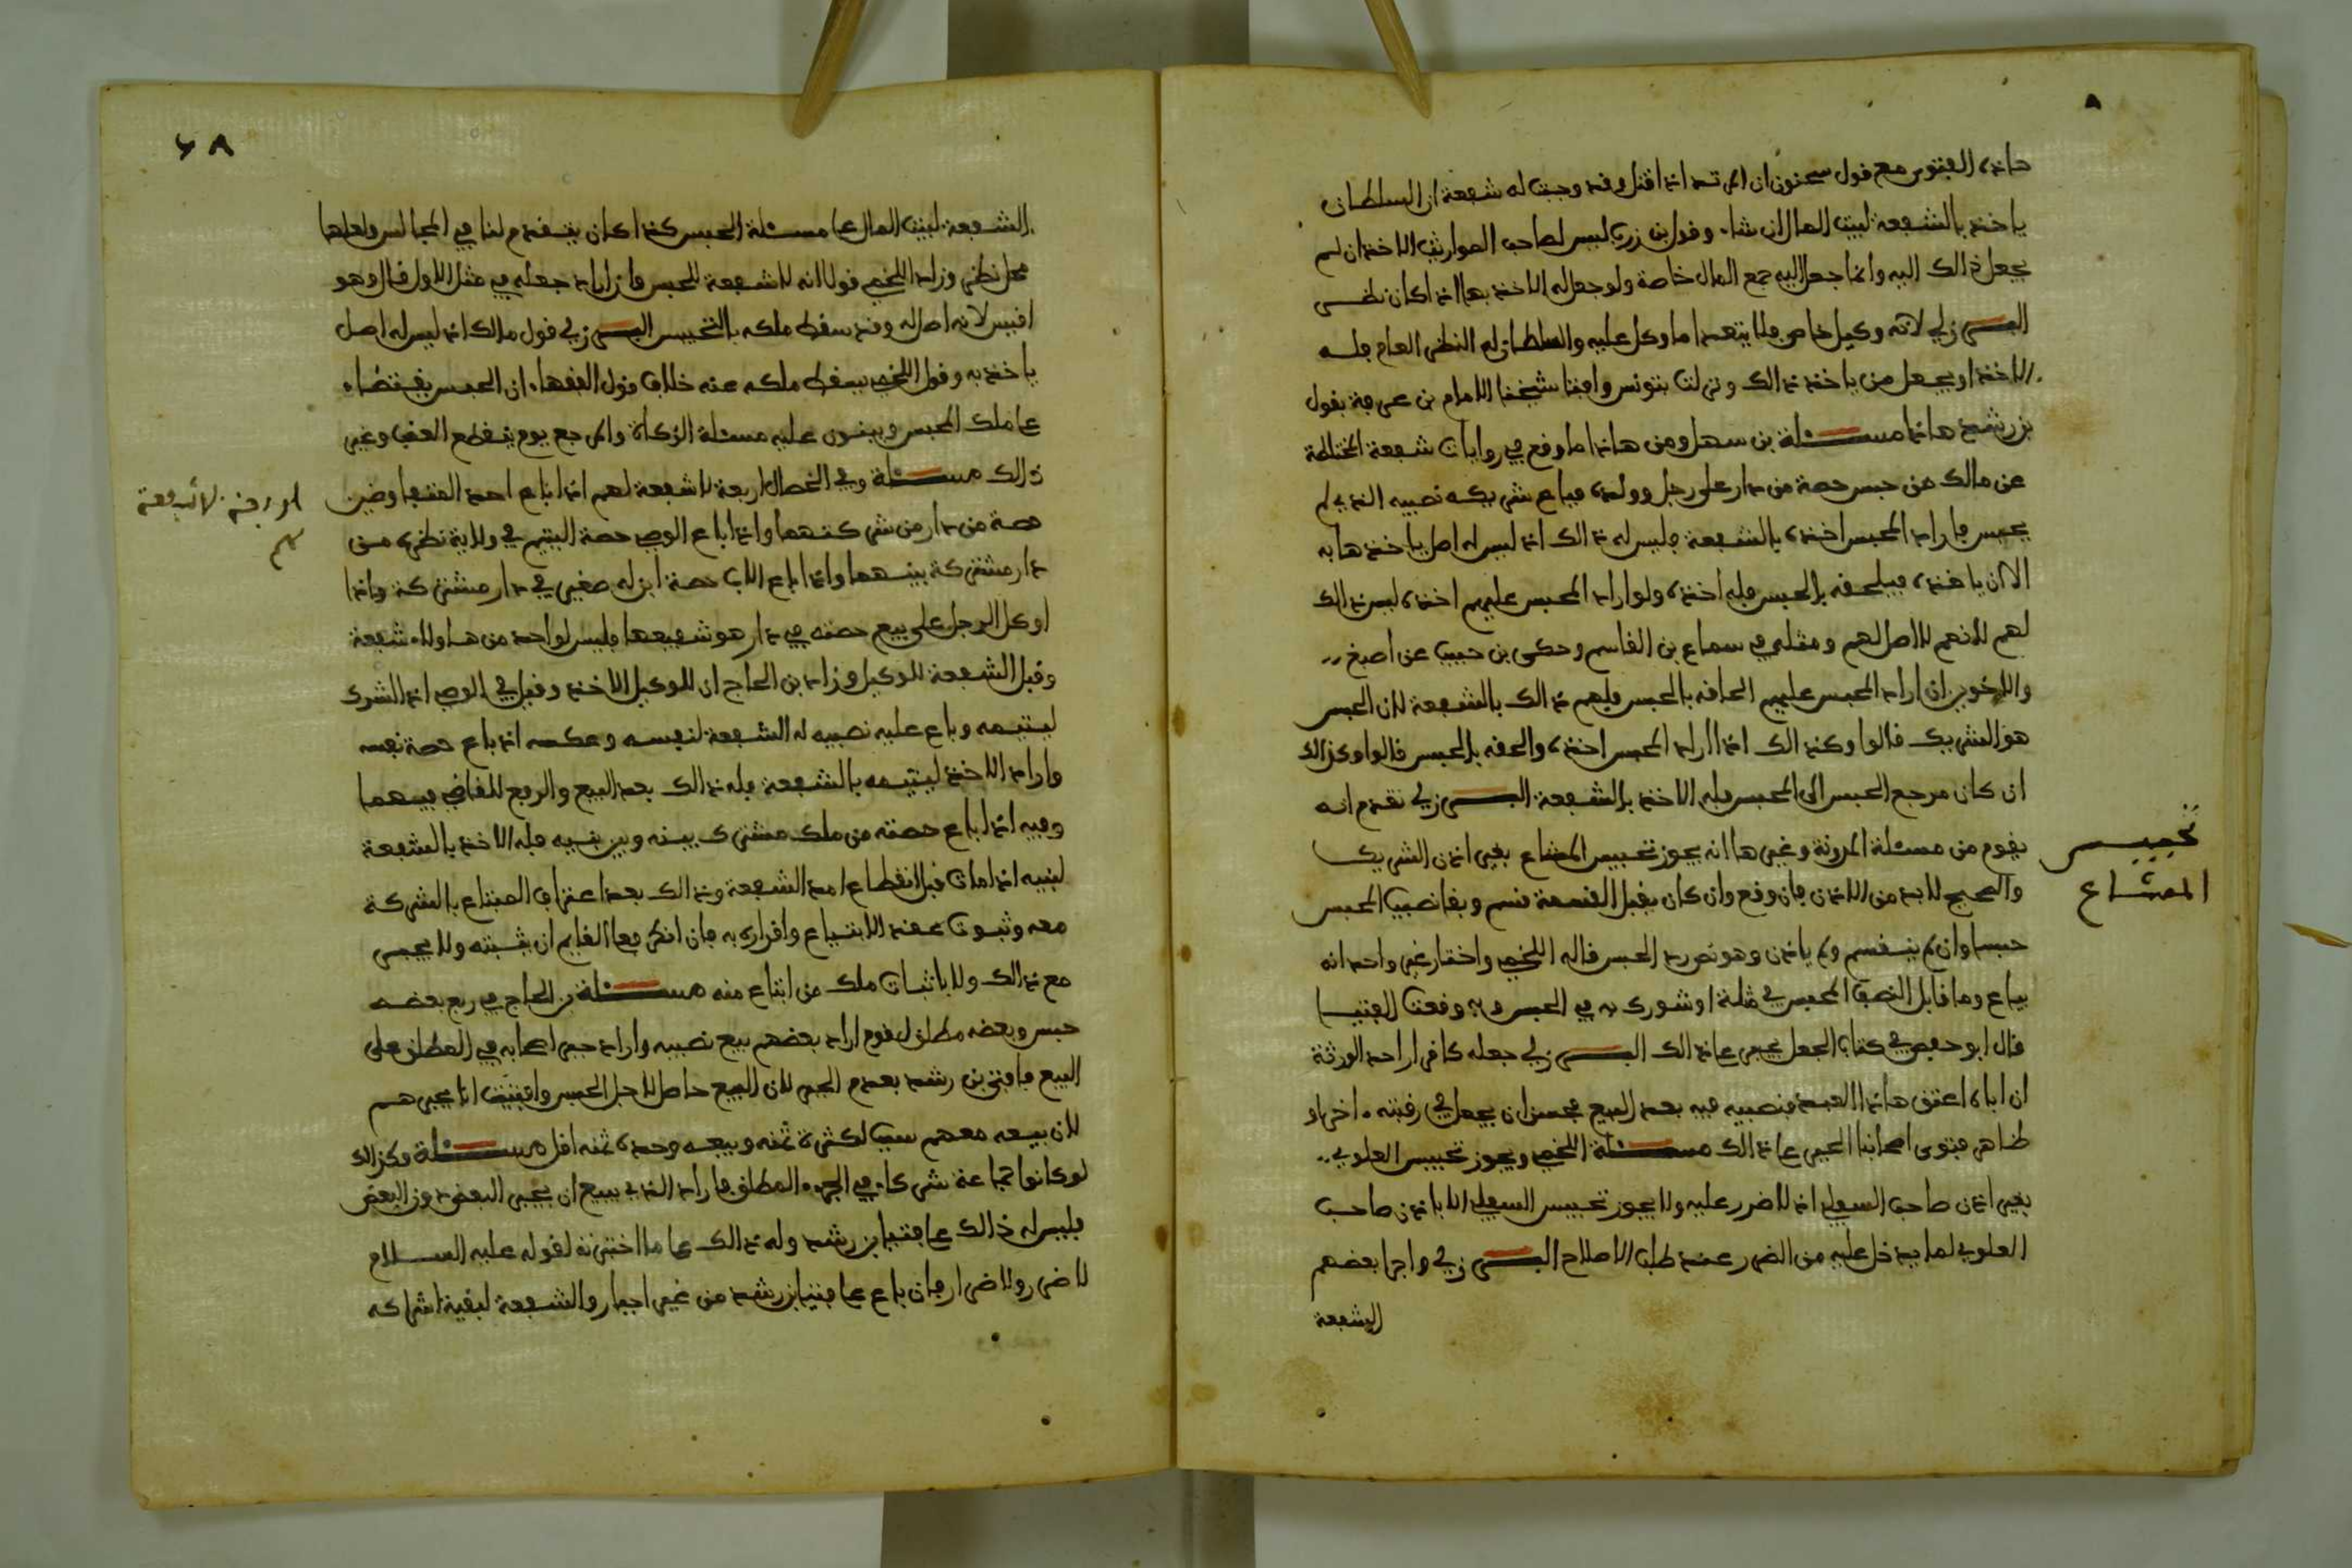 هاذه الفتوى مع قول سحنون ان المرتد اذا قتل وقد وجبت له شفعة ان السلطان
ياخذ بالشفعة لبيت المال ان شاء وقول بن زرب ليس لصاحب المواريث الاخذ ان لم
يجعل ذالك اليه وانما جعل اليه جمع المال خاصة ولو جعل له الاخذ بها اذا كان نظر
البرزلي لانه وكيل خاص فلا يتعدا ما وكل عليه والسلطان له النظر العام فله
الاخذ او يجعل من ياخذ ذالك ونزلت بتونس وافتا شيخنا الامام بن عرفة بقول
بن رشد هاذا مسئلة بن سهل ومن هاذا ما وقع في روايات شفعة المختلطة
عن مالك من حبس حصة من دار على رجل وولده فباع شريكه نصيبه الذي لم
يحبس فاراد المحبس اخذه بالشفعة فليس له ذالك اذ ليس له اصل ياخذ هابه
الا ان ياخذه فيلحقه بالحبس فله اخذه ولو اراد المحبس عليهم اخذه ليس ذالك
لهم لانهم لا اصل لهم ومثله في سماع بن القاسم وحكى بن حبيب عن اصبغ
والاخوين ان اراد المحبس عليهم الحاقه بالحبس فلهم ذالك بالشفعة لان الحبس
هو الشريك قالوا وكذالك اذا اراد المحبس اخذه والحقه بالحبس قالوا وكذالك
ان كان مرجع الحبس الى المحبس فله الاخذ بالشفعة البرزلي تقدم انه
يقوم من مسئلة المدونة وغيرها انه يجوز تحبيس المشاع بغير اذن الشريك
تحبيس
المشاع
والصحيح لا بد من الاذن فان وقع وان كان يقبل القسمة قسم وبقا نصيب المحبس
حبسا وان لم ينقسم ولم ياذن وهو نص رد الحبس قاله اللخمي واختار غير واحد انه
يباع وما قابل النصيب المحبس في مثله او شورك به في الحبس وبه وقعت الفتيا
قال ابو حفص في كتاب الجعل يجبر على ذالك البرزلي جعله كاقرار احد الورثة
ان اباه اعتق هاذا العبد فنصيبه فيه بعد البيع يحسن ان يجعل في رقبته اخرا و
ظاهر فتوى اصحابنا الجبر على ذالك مسئلة اللخمي ويجوز تحبيس العلوي
بغير اذن صاحب السفلي اذ لا ضرر عليه ولا يجوز تحبيس السفلي الا باذن صاحب
العلوي لما يدخل عليه من الضرر عند طلب الاصلاح البرزلي واجرا بعضهم
الشفعة
٦٨
الشفعة لبيت المال على مسئلة الحبس كذا كان يتقدم لنا في المجالس ولعلها
محل نظر وزاد اللخمي قولا انه لا شفعة للمحبس وان اراد جعله في مثل الاول قال وهو
اقيس لانه اصل له وقد سقط ملكه بالتحبيس البرزلي قول مالك اذ ليس له اصل
ياخذ به وقول اللخمي يسقط ملكه عنه خلاف قول الفقهاء ان الحبس يقتضاء
على ملك المحبس ويبنون عليه مسئلة الزكاة والمرجع يوم ينقطع العقب وغير
ذالك مسئلة وفي الخصال اربعة لا شفعة لهم اذا باع احد المتفاوضين
اربعة لا شفعة
لهم
حصة من دار من شركتهما واذا باع الوصي حصة اليتيم في ولاية نظره من
دار مشتركة بينهما واذا باع الاب حصة ابن له صغير في دار مشتركة واذا
اوكل الرجل على بيع حصته في دار هو شفيعها فليس لواحد من هاولاء شفعة
وقيل الشفعة للوكيل وزاد بن الحاج ان للوكيل الاخذ وقيل في الوصي اذا اشرك
ليتيمه وباع عليه نصيبه له الشفعة لنفسه وعكسه اذ باع حصة نفسه
واراد الاخذ ليتيمه بالشفعة فله ذالك بعد البيع والرفع للقاضي فيهما
وفيه اذا باع حصته من ملك مشترك بينه وبين بنيه فله الاخذ بالشفعة
لبنيه اذا مات قبل انقطاع امد الشفعة وذالك بعد اعتراف المبتاع بالشركة
معه وثبوت عقد الابتياع واقراره به فان انكر فعلى القايم ان يثبته ولا يجبر
مع ذالك ولا باثبات ملك من ابتاع منه مسئلة بن الحاج في ربع بعضه
حبس وبعضه مطلق لقوم اراد بعضهم بيع نصيبه واراد جبر اصحابه في المطلق على
البيع فافتى بن رشد بعدم الجبر لان البيع حاصل لاجل الحبس وافتيت انا يجبرهم
لان بيعه معهم سبب لكثرة ثمنه وبيعه وحده ثمنه اقل مسئلة وكذالك
لو كانوا جماعة شركاء في الجزء المطلق فاراد الذي يبيع ان يجبر البعض دون البعض
فليس له ذالك على فتيا بن رشد وله ذالك على ما اخترته لقوله عليه السلام
لا ضرر ولا ضرار فان باع على فتيا بن رشد من غير اجبار والشفعة لبقية اشراكه